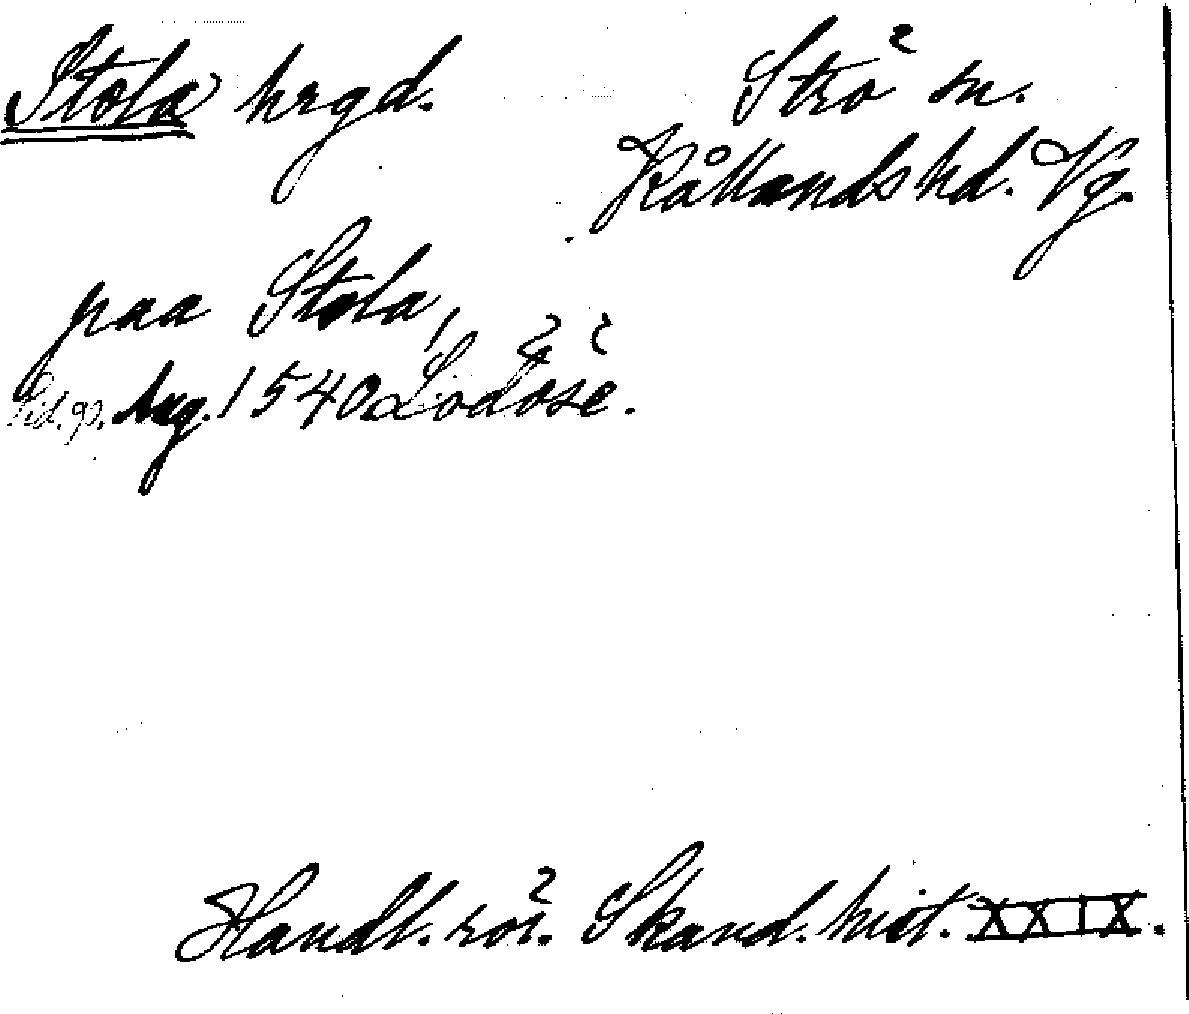 Stola hrgd.
Strö sn.
Kållands hd. Vg.
paa Stola,
Aug. 1540. Lödöse.
Handl. rör. Skand. hist. XXIX.